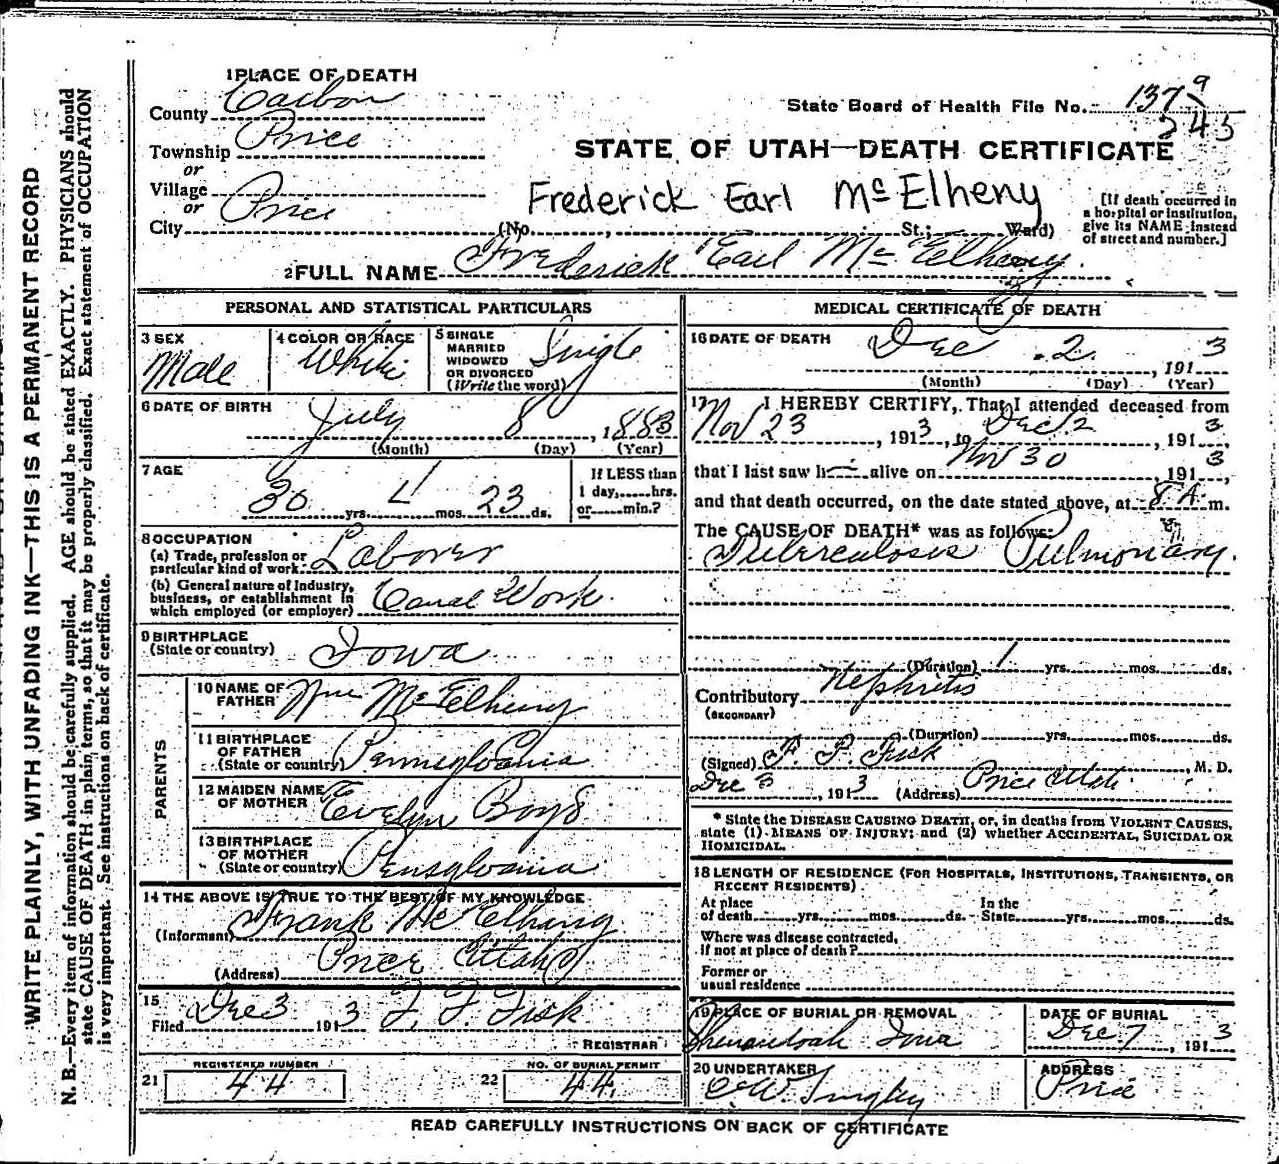 1 PLACE OF DEATH
County Carbon
Township Price
or
Village
or
City Price
State Board of Health File No. 1379
245
STATE OF UTAH—DEATH CERTIFICATE
Frederick Earl McElheny
(No. , St.; Ward)
[If death occurred in a hospital or institution, give its NAME instead of street and number.]
2 FULL NAME Frederick Earl McElheny
PERSONAL AND STATISTICAL PARTICULARS
3 SEX Male
4 COLOR OR RACE White
5 SINGLE MARRIED WIDOWED OR DIVORCED (Write the word) Single
6 DATE OF BIRTH July 8, 1883
(Month) (Day) (Year)
7 AGE 30 yrs. 4 mos. 23 ds.
If LESS than 1 day,......hrs. or......min.?
8 OCCUPATION
(a) Trade, profession or particular kind of work Laborer
(b) General nature of Industry, business, or establishment in which employed (or employer) Canal Work
9 BIRTHPLACE (State or country) Iowa
PARENTS
10 NAME OF FATHER Wm McElheny
11 BIRTHPLACE OF FATHER (State or country) Pennsylvania
12 MAIDEN NAME OF MOTHER Evelyn Boyd
13 BIRTHPLACE OF MOTHER (State or country) Pensylvania
14 THE ABOVE IS TRUE TO THE BEST OF MY KNOWLEDGE
(Informant) Frank McElheny
(Address) Price Utah
15
Filed Dec 3 1913 F. F. Fisk
REGISTRAR
REGISTERED NUMBER
21 44
NO. OF BURIAL PERMIT
22 44
MEDICAL CERTIFICATE OF DEATH
16 DATE OF DEATH Dec 2, 1913
(Month) (Day) (Year)
17 I HEREBY CERTIFY, That I attended deceased from
Nov 23, 1913, to Dec 2, 1913,
that I last saw h alive on Nov 30 1913,
and that death occurred, on the date stated above, at 8 A m.
The CAUSE OF DEATH* was as follows:
Tuberculosis Pulmonary.
(Duration) 1 yrs. mos. ds.
Contributory Nephritis
(SECONDARY)
(Duration) yrs. mos. ds.
(Signed) F. F. Fisk, M. D.
Dec 3, 1913 (Address) Price Utah
* State the DISEASE CAUSING DEATH, or, in deaths from VIOLENT CAUSES, state (1) MEANS OF INJURY; and (2) whether ACCIDENTAL, SUICIDAL OR HOMICIDAL.
18 LENGTH OF RESIDENCE (FOR HOSPITALS, INSTITUTIONS, TRANSIENTS, OR RECENT RESIDENTS)
At place of death yrs. mos. ds. In the State yrs. mos. ds.
Where was disease contracted, if not at place of death?
Former or usual residence
19 PLACE OF BURIAL OR REMOVAL Shenandoah Iowa
DATE OF BURIAL Dec 7, 1913
20 UNDERTAKER
ADDRESS Price
READ CAREFULLY INSTRUCTIONS ON BACK OF CERTIFICATE
WRITE PLAINLY, WITH UNFADING INK—THIS IS A PERMANENT RECORD
N. B.—Every item of information should be carefully supplied. AGE should be stated EXACTLY. PHYSICIANS should
state CAUSE OF DEATH in plain terms, so that it may be properly classified. Exact statement of OCCUPATION
is very important. See instructions on back of certificate.